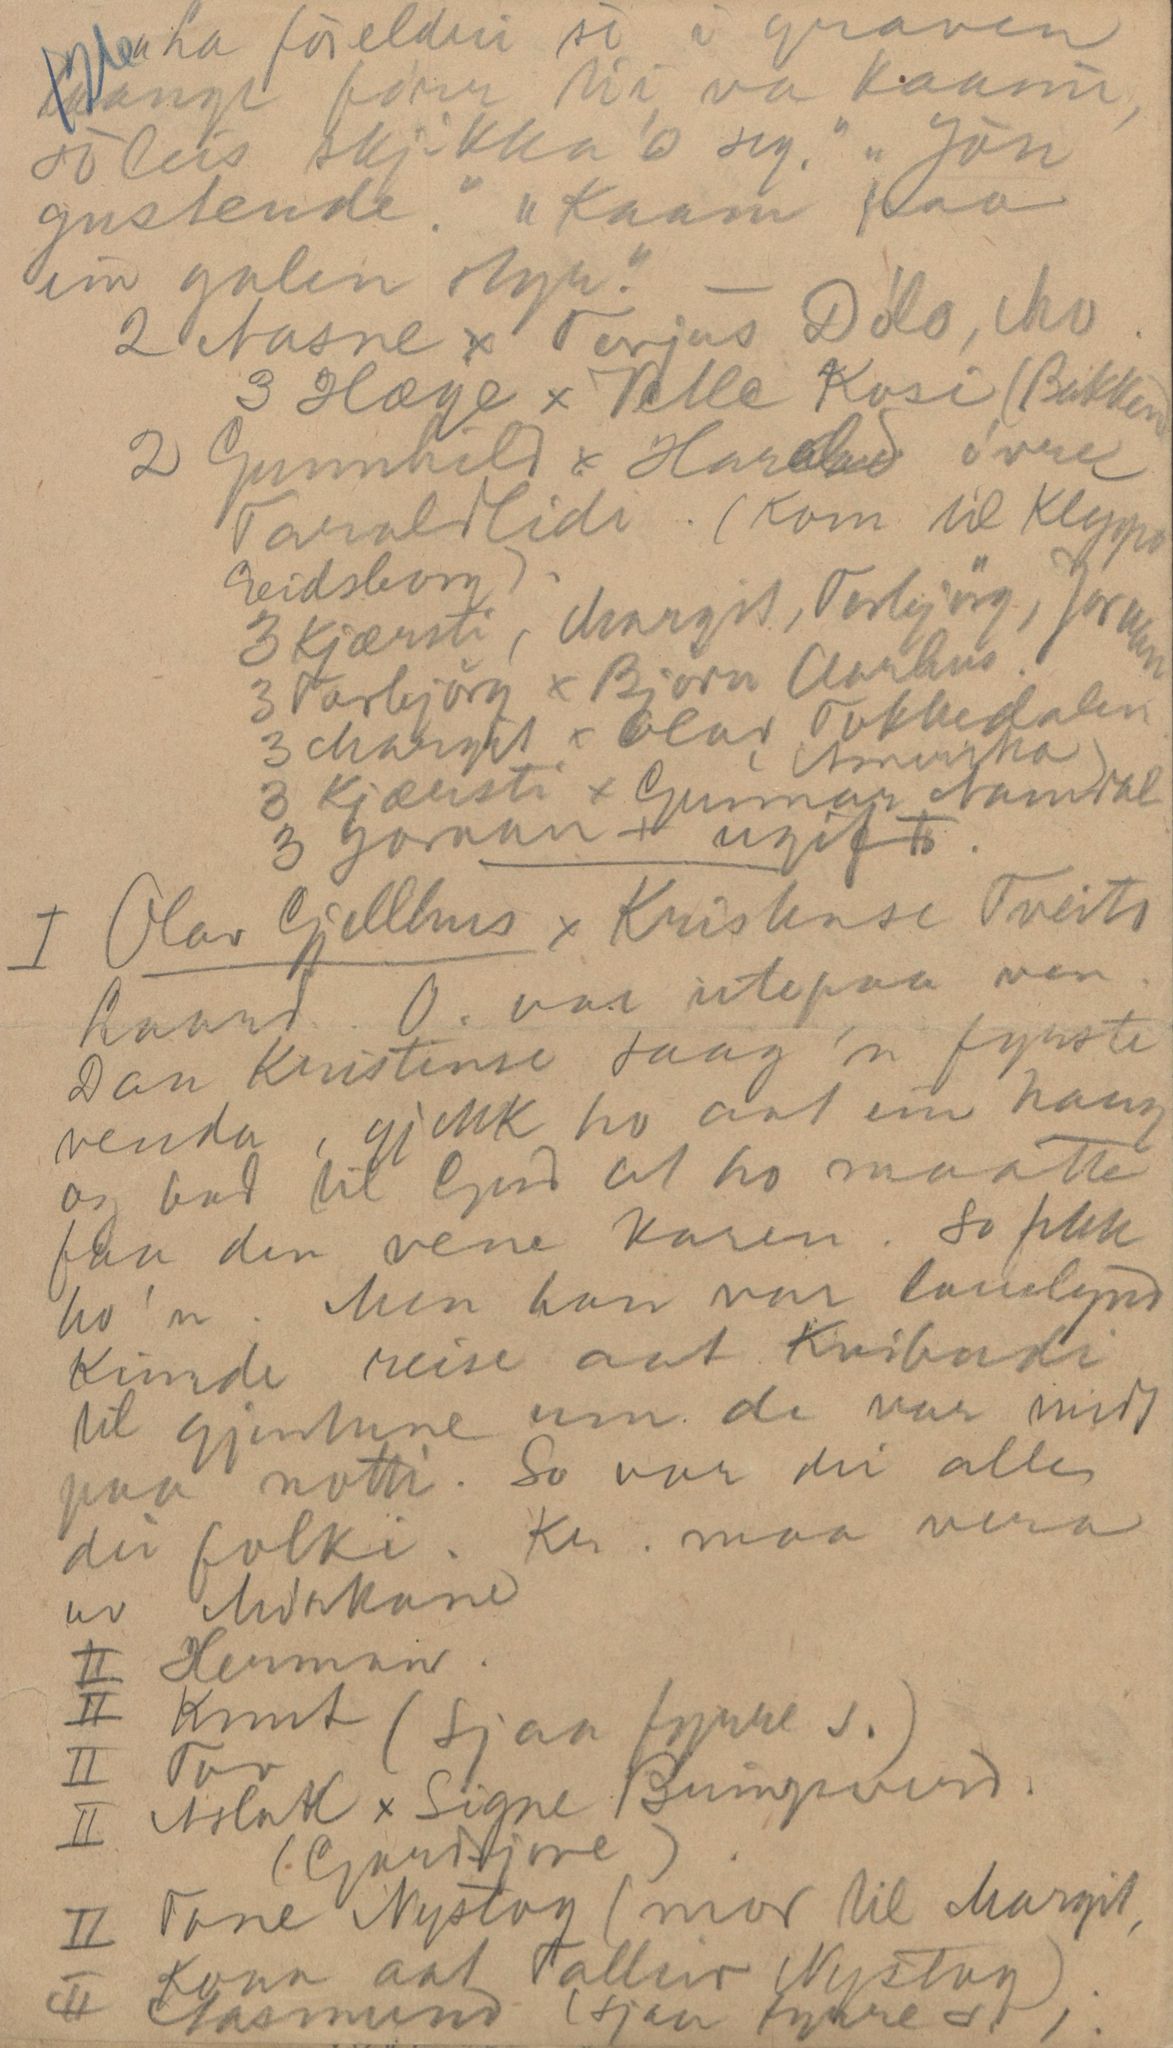 ha föreldri si i graven
laangt förr hi va kaami,
sö leis skjikka 'o seg." „Jön
gustende." „Kaam paa
ein galen styr." —
2 Aasne x Torjus Dölo, Mo.
3 Hæge x Pelle Kosi (Bakken
2 Gunnhild x Harald övre
Taraldlidi. (kom til Kleppo
Eidsborg).
3 Kjærsti, Margit, Torbjörg, Joraan
3 Torbjörg x Bjørn Aarhus.
3 Margit x Olav Tokkedalen
(Amerika)
3 Kjærsti x Gunnar Aamdal
3 Joraan + ugift.
I Olav Gjellhus x Kristense Tveito
haard. O. var utepaa ven.
Dan Kristense saag 'n fyrste
venda, gjekk ho aat ein haug
og bad til Gud at ho maatte
faa den vene karen. So fekk
ho 'n. Men han var lauslynd
Kunde reise aat Kvibardi
til gjentune um de var midt
paa notti. So var dei alle,
dei folki. Kr. maa vera
av
II Herman.
II Knut (sjaa fyrre s.)
II Tov
II Aslak x Signe
(Gardsjore).
II Tone Nystog (mor til Margit,
Kona aat Talleiv Nystog)
II Aasmund (sjaa fyrre s.).